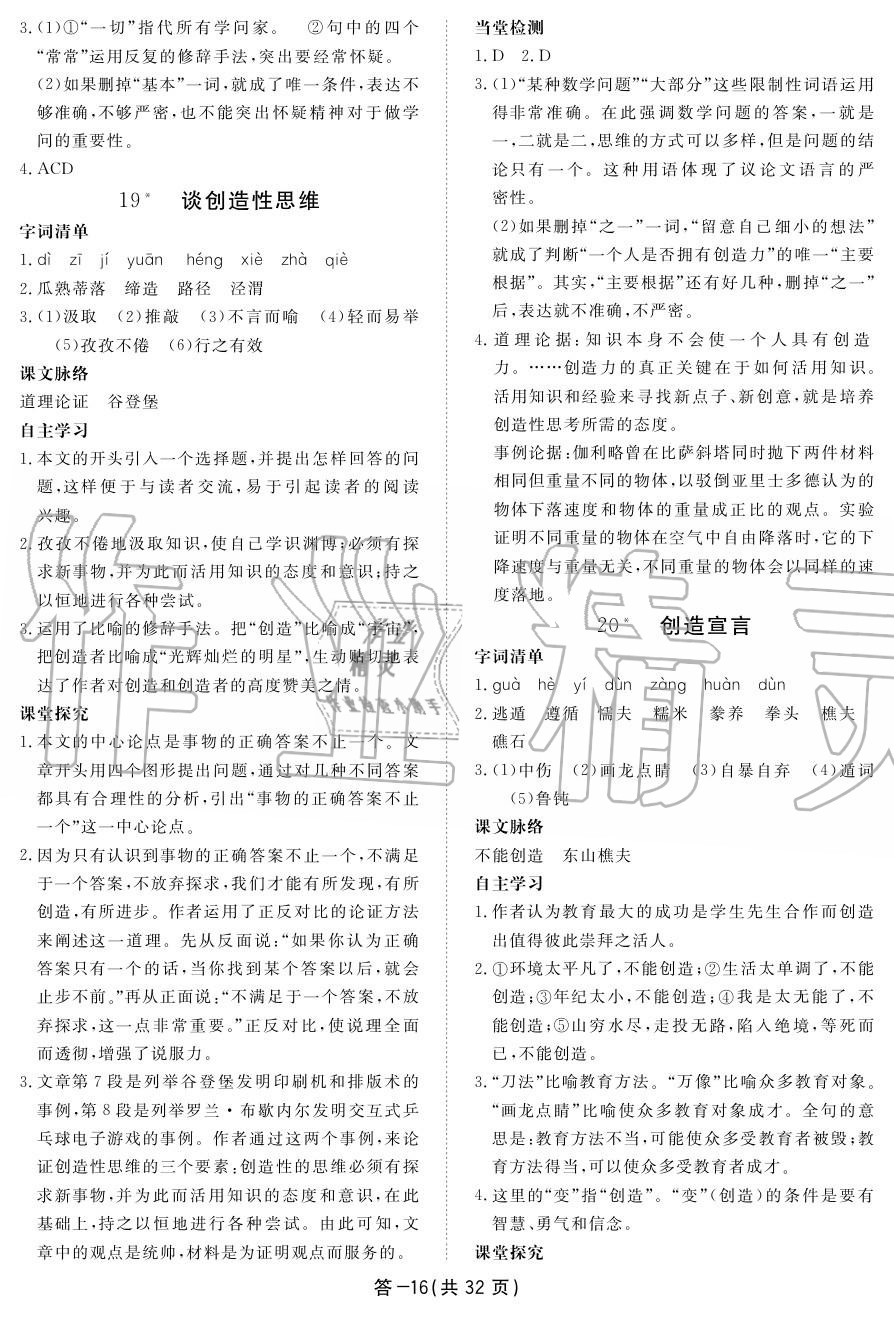 3.(1)①“一切”指代所有学问家。 ②句中的四个
“常常”运用反复的修辞手法,突出要经常怀疑。
(2)如果删掉“基本”一词,就成了唯一条件,表达不
够准确,不够严密,也不能突出怀疑精神对于做学
问的重要性。
4.ACD
19* 谈创造性思维
字词清单
1.dì zī jí yuān héng xiè zhà qiè
2.瓜熟蒂落 缔造 路径 泾渭
3.(1)汲取 (2)推敲 (3)不言而喻 (4)轻而易举
(5)孜孜不倦 (6)行之有效
课文脉络
道理论证 谷登堡
自主学习
1.本文的开头引入一个选择题,并提出怎样回答的问
题,这样便于与读者交流,易于引起读者的阅读
兴趣。
2.孜孜不倦地汲取知识,使自己学识渊博;必须有探
求新事物,并为此而活用知识的态度和意识;持之
以恒地进行各种尝试。
3.运用了比喻的修辞手法。把“创造”比喻成“宇宙”,
把创造者比喻成“光辉灿烂的明星”,生动贴切地表
达了作者对创造和创造者的高度赞美之情。
课堂探究
1.本文的中心论点是事物的正确答案不止一个。文
章开头用四个图形提出问题,通过对几种不同答案
都具有合理性的分析,引出“事物的正确答案不止
一个”这一中心论点。
2.因为只有认识到事物的正确答案不止一个,不满足
于一个答案,不放弃探求,我们才能有所发现,有所
创造,有所进步。作者运用了正反对比的论证方法
来阐述这一道理。先从反面说:“如果你认为正确
答案只有一个的话,当你找到某个答案以后,就会
止步不前。”再从正面说:“不满足于一个答案,不放
弃探求,这一点非常重要。”正反对比,使说理全面
而透彻,增强了说服力。
3.文章第7段是列举谷登堡发明印刷机和排版术的
事例,第8段是列举罗兰·布歇内尔发明交互式乒
乓球电子游戏的事例。作者通过这两个事例,来论
证创造性思维的三个要素:创造性的思维必须有探
求新事物,并为此而活用知识的态度和意识,在此
基础上,持之以恒地进行各种尝试。由此可知,文
章中的观点是统帅,材料是为证明观点而服务的。
当堂检测
1.D 2.D
3.(1)“某种数学问题”“大部分”这些限制性词语运用
得非常准确。在此强调数学问题的答案,一就是
一,二就是二,思维的方式可以多样,但是问题的结
论只有一个。这种用语体现了议论文语言的严
密性。
(2)如果删掉“之一”一词,“留意自己细小的想法”
就成了判断“一个人是否拥有创造力”的唯一“主要
根据”。其实,“主要根据”还有好几种,删掉“之一”
后,表达就不准确,不严密。
4.道理论据:知识本身不会使一个人具有创造
力。……创造力的真正关键在于如何活用知识。
活用知识和经验来寻找新点子、新创意,就是培养
创造性思考所需的态度。
事例论据:伽利略曾在比萨斜塔同时抛下两件材料
相同但重量不同的物体,以驳倒亚里士多德认为的
物体下落速度和物体的重量成正比的观点。实验
证明不同重量的物体在空气中自由降落时,它的下
降速度与重量无关,不同重量的物体会以同样的速
度落地。
20* 创造宣言
字词清单
1.guà hè yí dùn zàng huàn dùn
2.逃遁 遵循 懦夫 糯米 豢养 拳头 樵夫
礁石
3.(1)中伤 (2)画龙点睛 (3)自暴自弃 (4)遁词
(5)鲁钝
课文脉络
不能创造 东山樵夫
自主学习
1.作者认为教育最大的成功是学生先生合作而创造
出值得彼此崇拜之活人。
2.①环境太平凡了,不能创造;②生活太单调了,不能
创造;③年纪太小,不能创造;④我是太无能了,不
能创造;⑤山穷水尽,走投无路,陷入绝境,等死而
已,不能创造。
3.“刀法”比喻教育方法。“万像”比喻众多教育对象。
“画龙点睛”比喻使众多教育对象成才。全句的意
思是:教育方法不当,可能使众多受教育者被毁;教
育方法得当,可以使众多受教育者成才。
4.这里的“变”指“创造”。“变”(创造)的条件是要有
智慧、勇气和信念。
课堂探究
答-16(共32页)
作业精灵